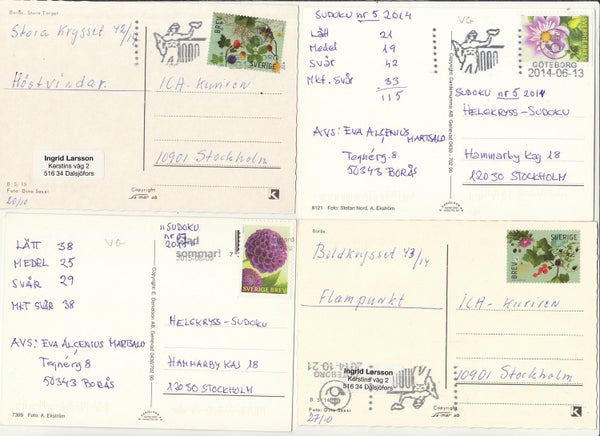 Borås. Stora Torget
Stora Krysset 42/14
Höstvindar
Ingrid Larsson
Kerstins väg 2
516 34 Dalsjöfors
B. S: 15
Foto: Dino Sassi
20/10
BREV
SVERIGE
ICA-Kuriren
10901 Stockholm
Copyright
K
SUDOKU nr 5 2014
LÄTT 21
MEDEL 19
SVÅR 42
MKT. SVÅR 33
115
AVS: EVA ALÇENIUS MARTSALO
Tegnérg. 8
50343 BORÅS
8121 Foto: Stefan Nord, A. Ekström
VG
GÖTEBORG
2014-06-13
SUDOKU nr 5 2014
HELGKRYSS-SUDOKU
HAMMARBY KAJ 18
12030 STOCKHOLM
LÄTT 38
MEDEL 25
SVÅR 29
MKT SVÅR 38
VG
AVS: EVA ALÇENIUS MARTSALO
Tegnérg 8
50343 BORÅS
7399 Foto: A. Ekström
SUDOKU
sommar!
SVERIGE BREV
HELGKRYSS-SUDOKU
HAMMARBY KAJ 18
12030 STOCKHOLM
Borås.
Bildkrysset 43/14
Flampunkt
GÖTEBORG
2014-10-21
Ingrid Larsson
Kerstins väg 2
516 34 Dalsjöfors
Foto: Dino Sassi
27/10
BREV
SVERIGE
ICA-Kuriren
10901 Stockholm
Copyright
K